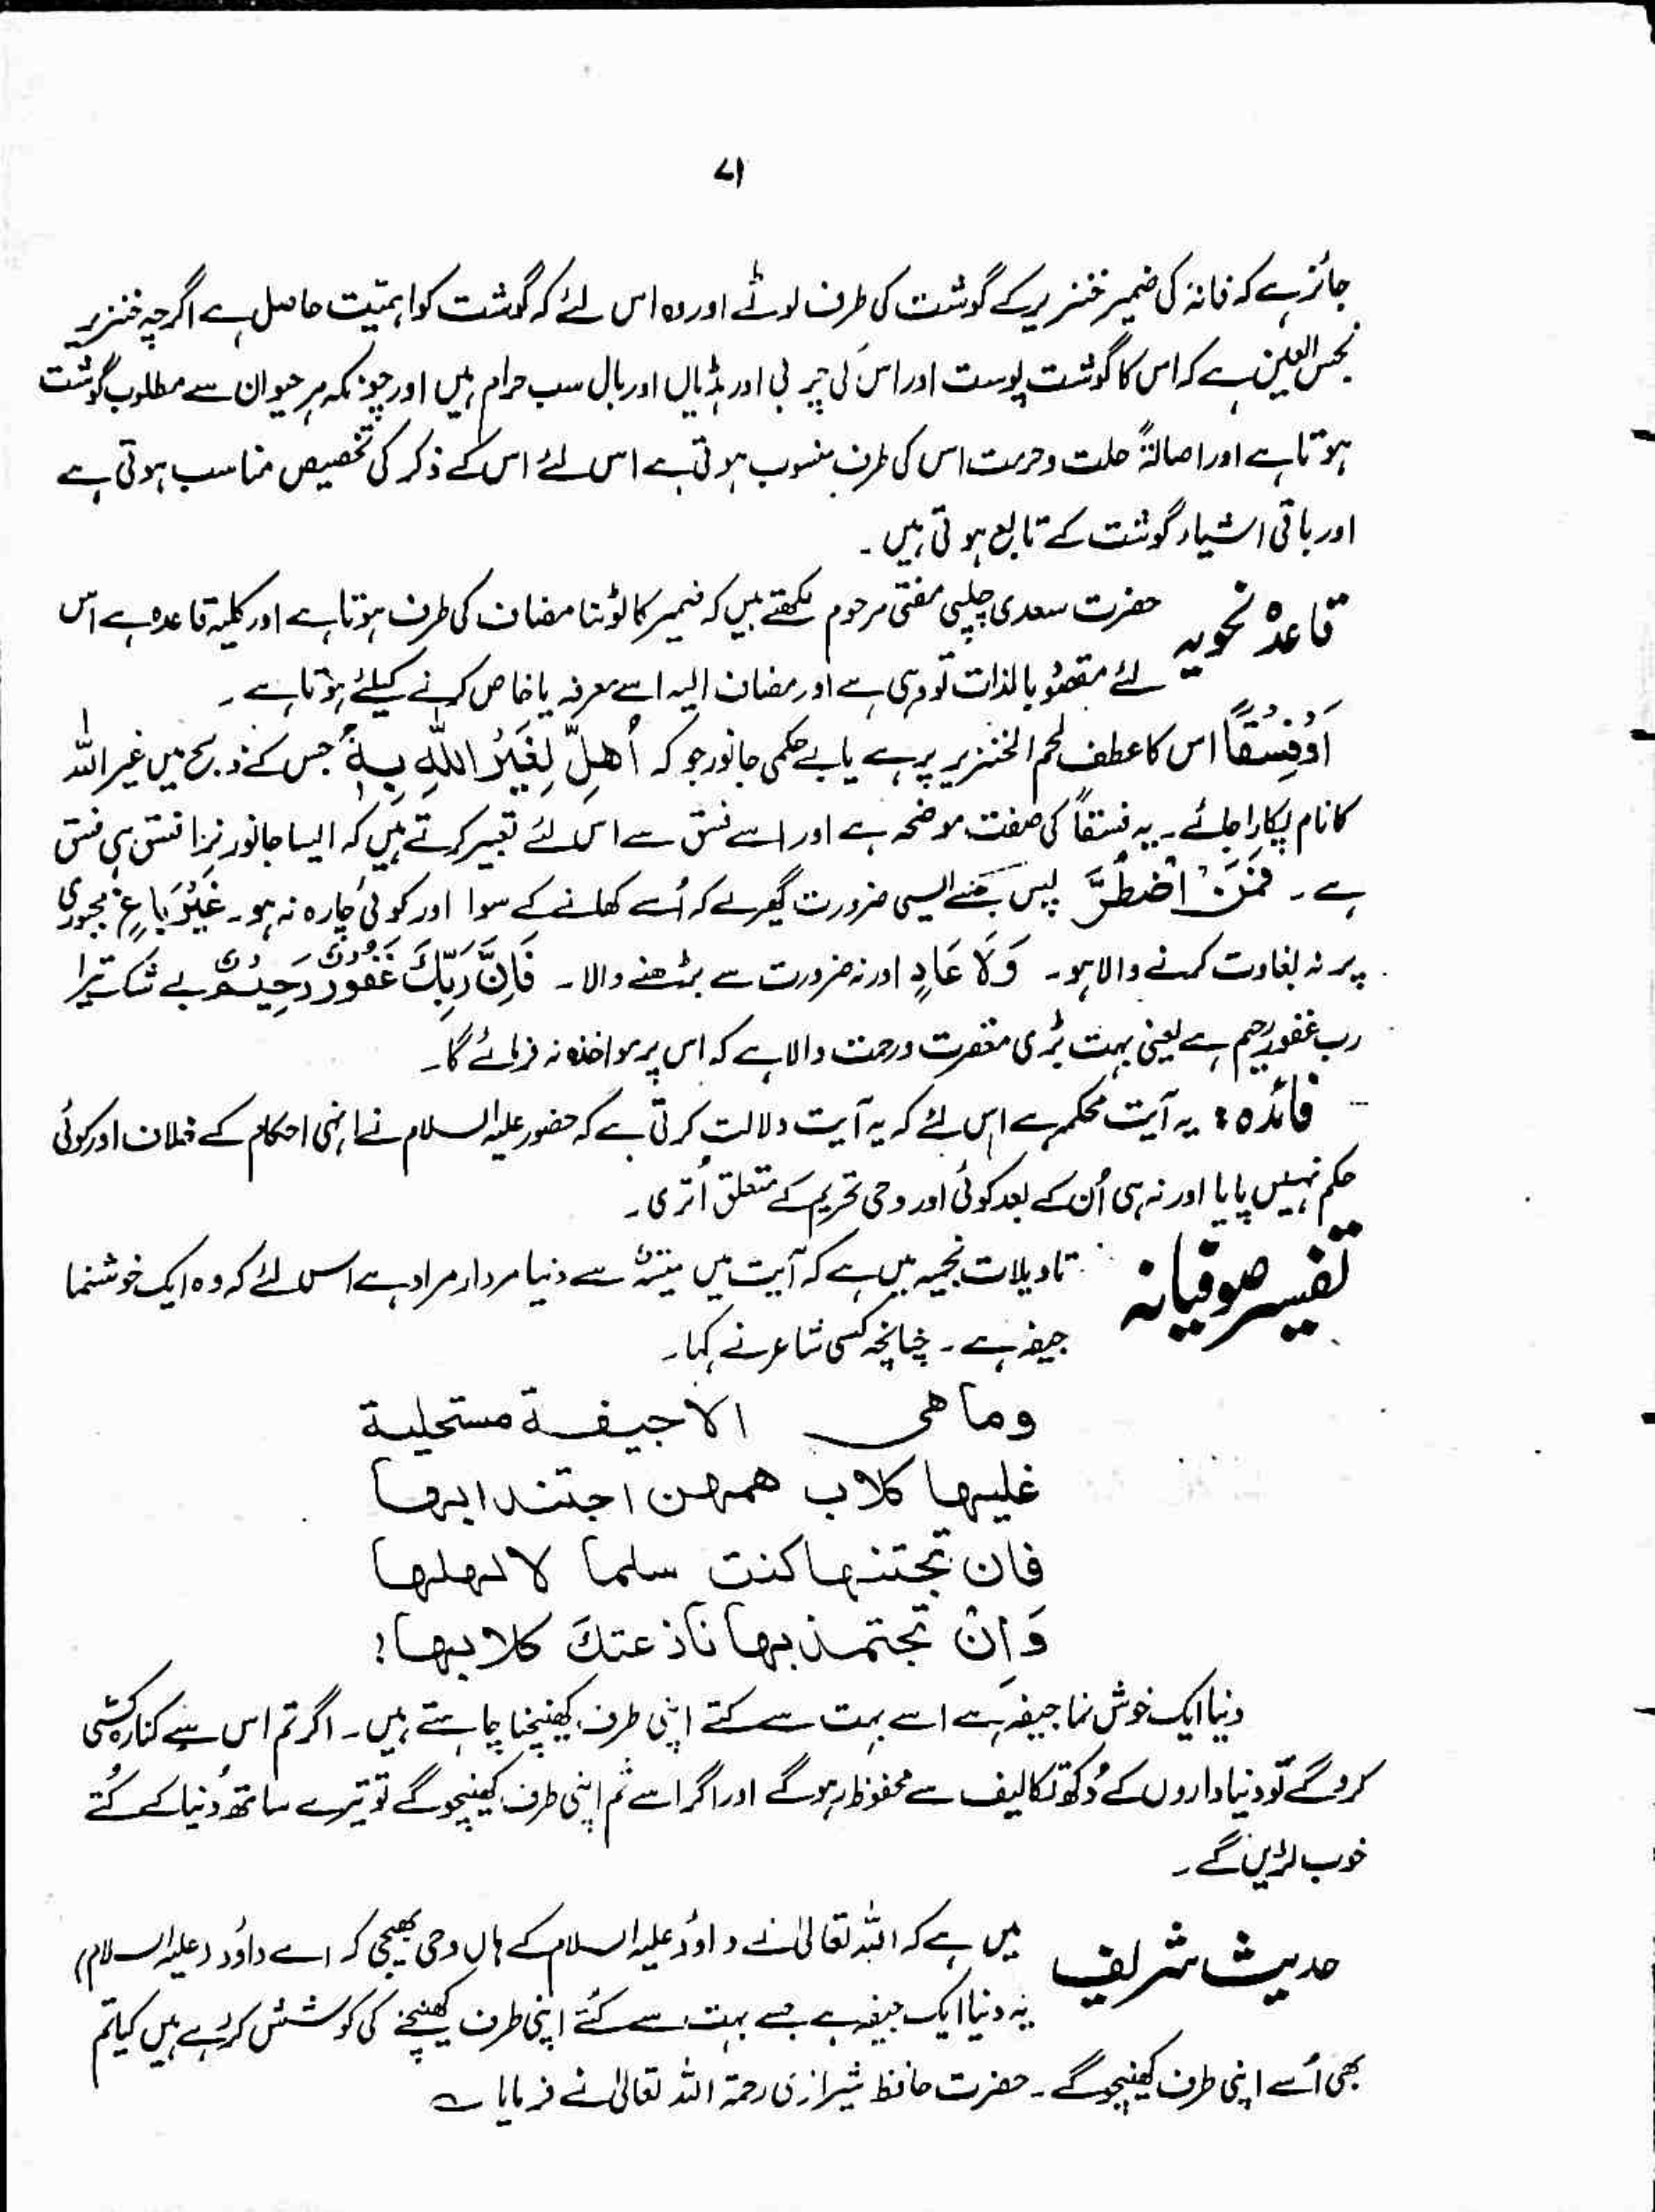 ۷۱
جائز ہے کہ فانہ کی ضمیر خنزیر کے گوشت کی طرف لوٹے اور وہ اس لئے کہ گوشت کو اہمیّت حاصل ہے اگرچہ خنزیر
نجس العین ہے کہ اس کا گوشت پوست اور اس کی چربی اور ہڈیاں اور بال سب حرام ہیں اور چونکہ ہر حیوان سے مطلوب گوشت
ہوتا ہے اور اصالۃً حلت و حرمت اس کی طرف منسوب ہوتی ہے اس لئے اس کے ذکر کی تخصیص مناسب ہوتی ہے
اور باقی اشیاء گوشت کے تابع ہوتی ہیں ۔
قاعدہ نحویہ حضرت سعدی چلپی مفتی مرحوم لکھتے ہیں کہ ضمیر کا لوٹنا مضاف کی طرف ہوتا ہے اور کلیہ قاعدہ ہے اس
لئے مقصود بالذات تو وہی ہے اور مضاف الیہ اسے معرفہ یا خاص کرنے کیلئے ہوتا ہے ۔
اَوْ فِسْقًا اس کا عطف لحم الخنزیر پر ہے یا بے حکمی جانور جو کہ اُهِلَّ لِغَيْرِ اللّٰهِ بِهٖ جس کے ذبح میں غیر اللہ
کا نام پکارا جائے ۔ یہ فسقاً کی صفت موضحہ ہے اور اسے فسق سے اس لئے تعبیر کرتے ہیں کہ ایسا جانور نرا فسق ہی فسق
ہے ۔ فَمَنِ اضْطُرَّ پس جسے ایسی ضرورت گھیرے کہ اُسے کھانے کے سوا اور کوئی چارہ نہ ہو ۔ غَيْرَ بَاغٍ مجبوری
پر نہ بغاوت کرنے والا ہو ۔ وَلَا عَادٍ اور نہ ضرورت سے بڑھنے والا ۔ فَاِنَّ رَبَّكَ غَفُوْرٌ رَّحِيْمٌ بے شک تیرا
رب غفور رحیم ہے یعنی بہت بڑی مغفرت و رحمت والا ہے کہ اس پر مواخذہ نہ فرمائے گا ۔
فائدہ : یہ آیت محکم ہے اس لئے کہ یہ آیت دلالت کرتی ہے کہ حضور علیہ السلام نے انہی احکام کے خلاف اور کوئی
حکم نہیں پایا اور نہ ہی اُن کے بعد کوئی اور وحی تحریم کے متعلق اُتری ۔
تفسیر صوفیانہ تاویلات نجمیہ میں ہے کہ آیت میں میتۃً سے دنیا مردار مراد ہے اس لئے کہ وہ ایک خوشنما
جیفہ ہے ۔ چنانچہ کسی شاعر نے کہا ۔
وما هى الا جيفة مستحلية
غليها كلاب همهن اجتندابها
فان تجتنها كنت سلما لالهلها
وَاِنْ تجتمذبها ناذعتكَ كلابها؛
دنیا ایک خوش نما جیفہ ہے اسے بہت سے کتے اپنی طرف کھینچنا چاہتے ہیں ۔ اگر تم اس سے کنارہ کشی
کروگے تو دنیاداروں کے دُکھ تکالیف سے محفوظ رہوگے اور اگر اسے تم اپنی طرف کھینچوگے تو تیرے ساتھ دُنیا کے کُتے
خوب لڑیں گے ۔
حدیث شریف میں ہے کہ اللہ تعالیٰ نے داؤد علیہ السلام کے ہاں وحی بھیجی کہ اے داؤد (علیہ السلام)
یہ دنیا ایک جیفہ ہے جسے بہت سے کُتے اپنی طرف کھینچنے کی کوشش کر رہے ہیں کیا تم
بھی اُسے اپنی طرف کھینچوگے ۔ حضرت حافظ شیرازی رحمۃ اللہ تعالیٰ نے فرمایا ؎